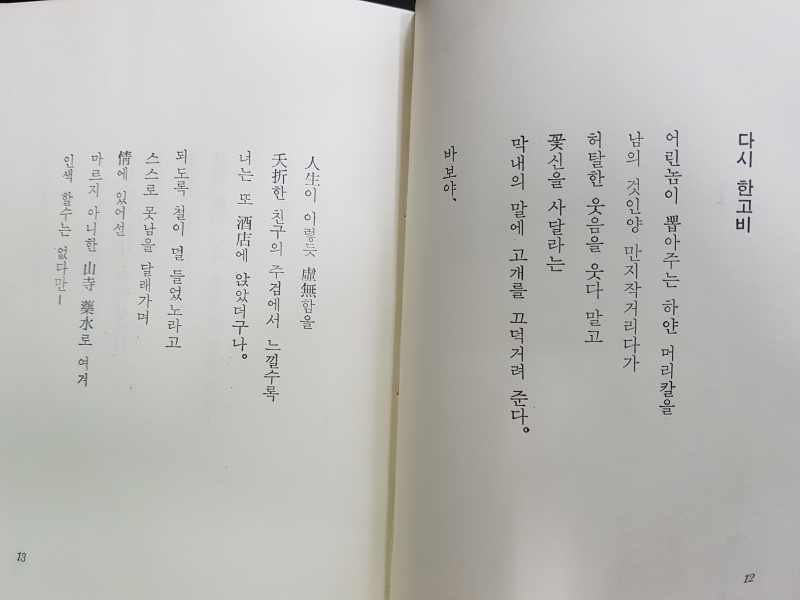 다시 한고비
어린놈이 뽑아주는 하얀 머리칼을
남의 것인양 만지작거리다가
허탈한 웃음을 웃다 말고
꽃신을 사달라는
막내의 말에 고개를 끄덕거려 준다。
바보야、
12
人生이 이렇듯 虛無함을
夭折한 친구의 주검에서 느낄수록
너는 또 酒店에 앉았더구나。
되도록 철이 덜 들었노라고
스스로 못남을 달래가며
情에 있어선
마르지 아니한 山寺 藥水로 여겨
인색 할수는 없다만ㅡ
13